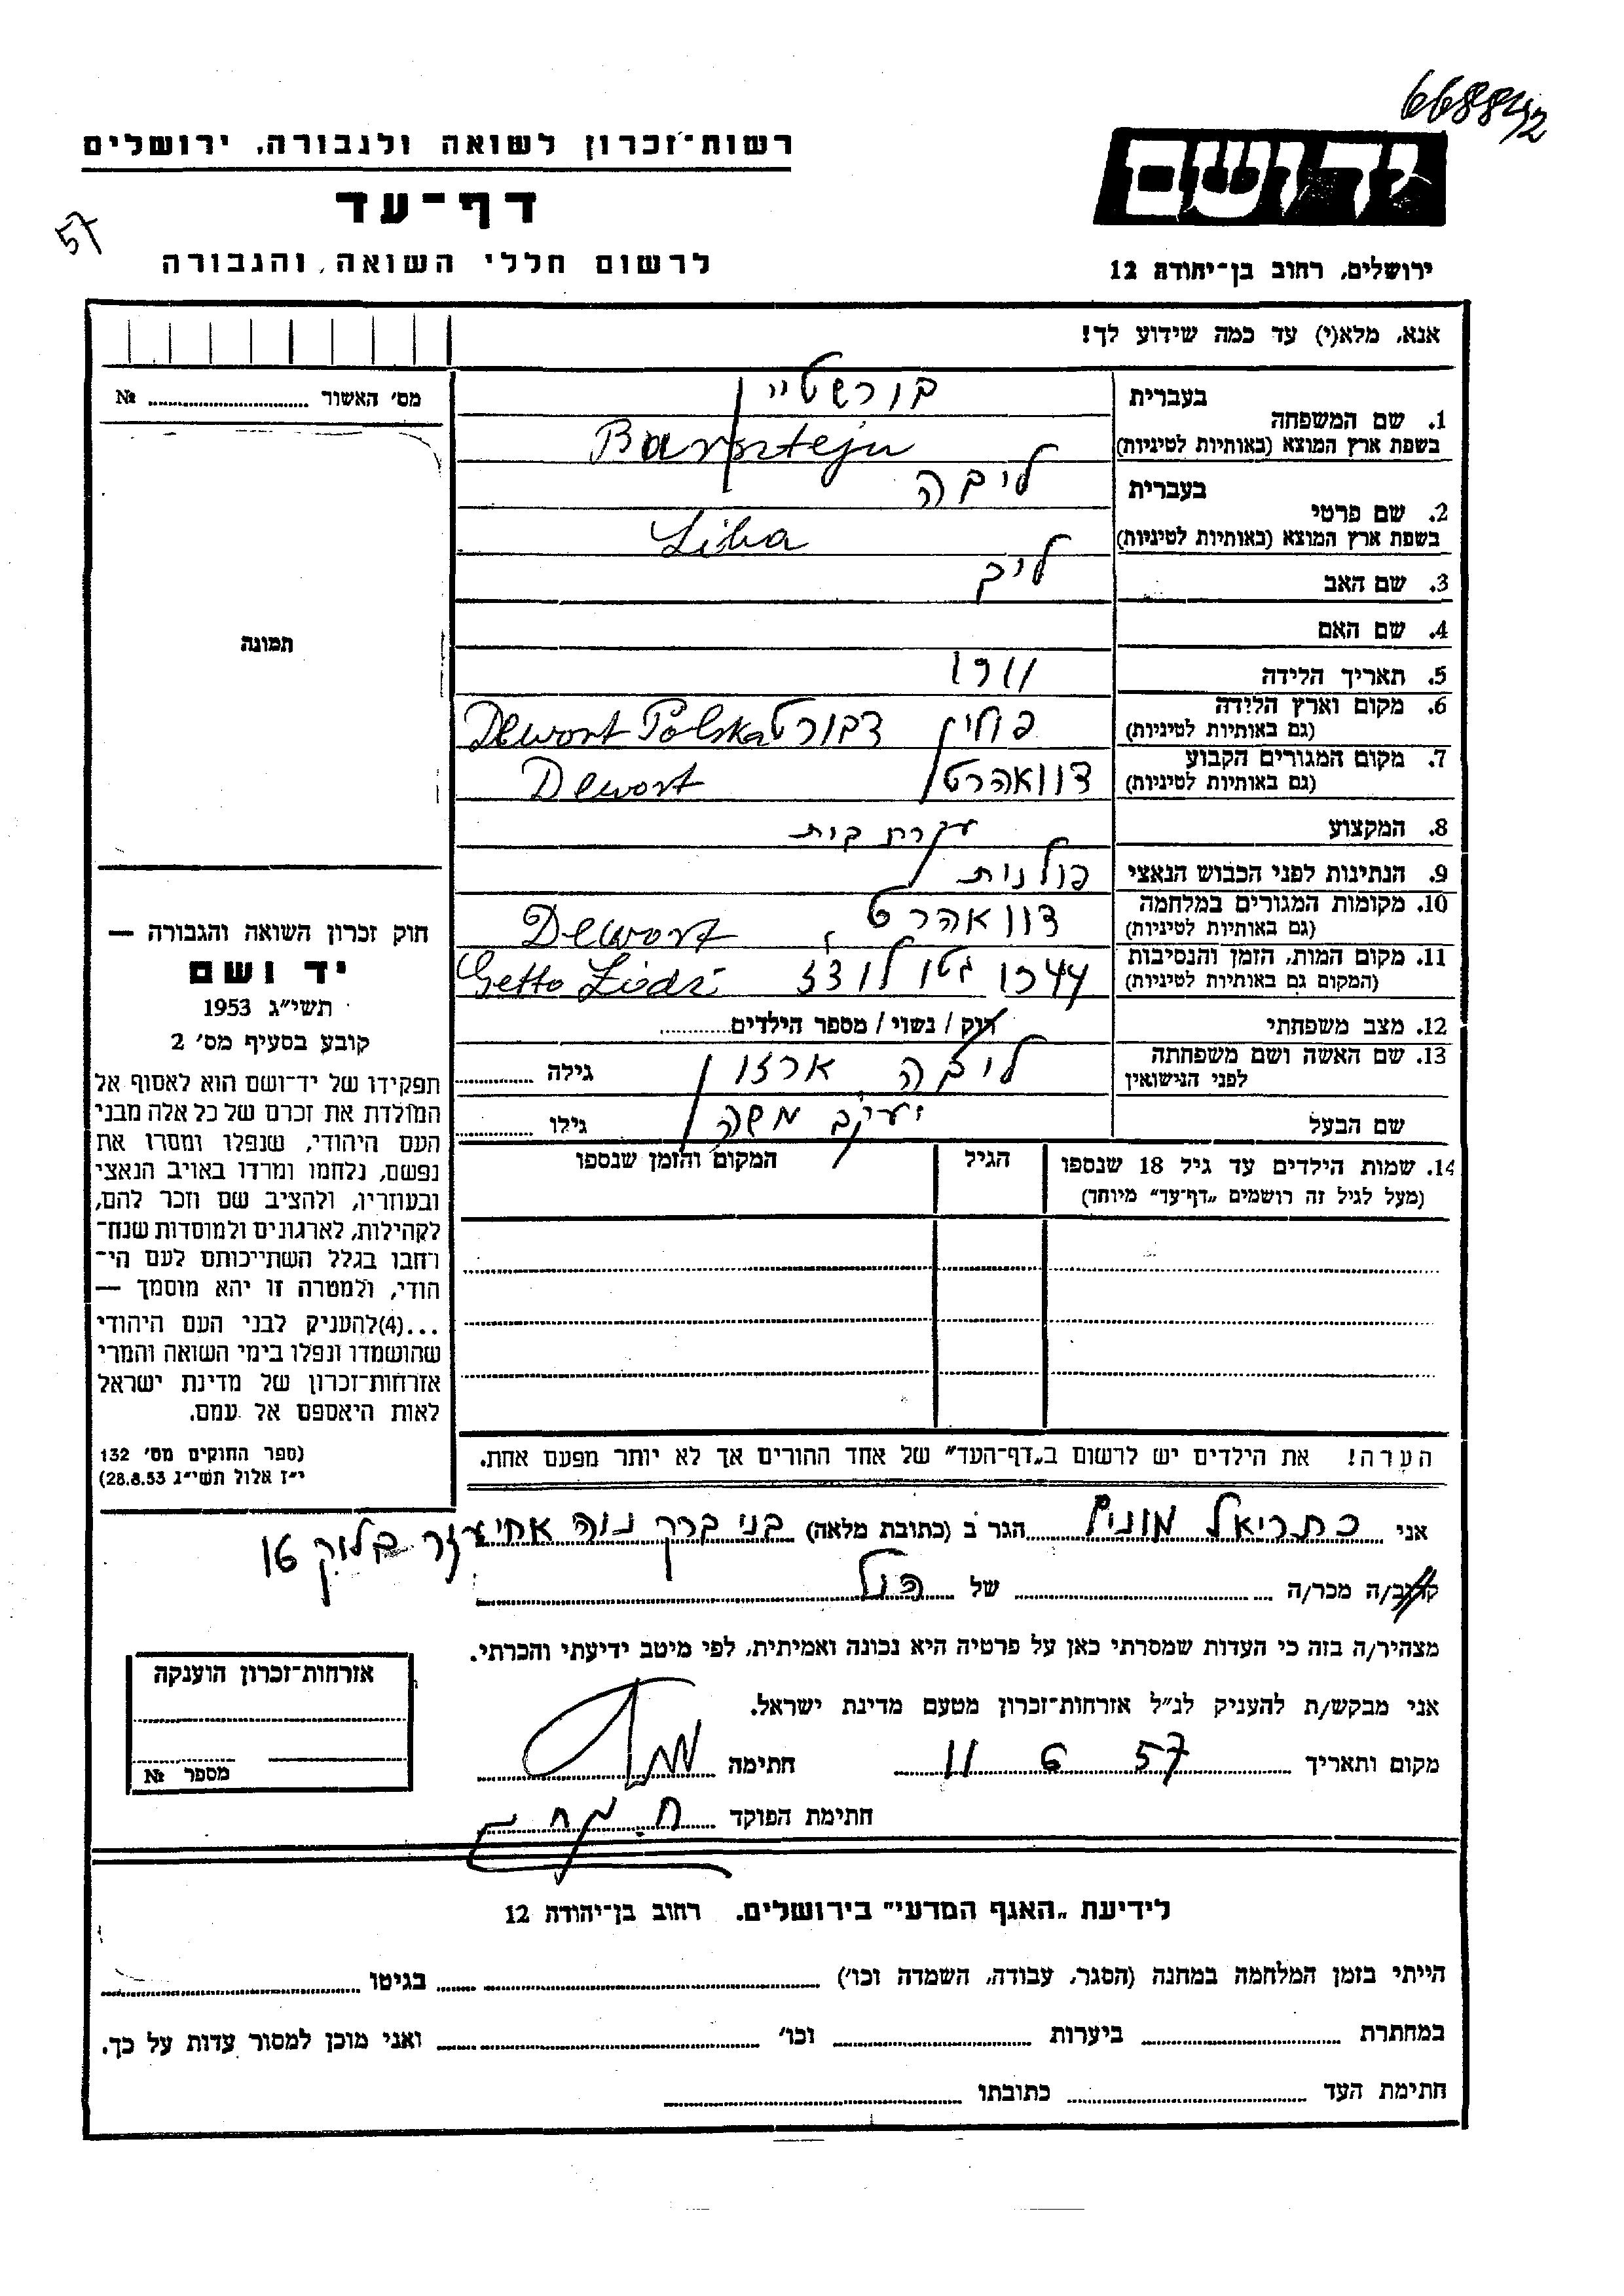 668842
רשות־זכרון לשואה ולגבורה, ירושלים
יד ושם
דף־עד
57
לרשום חללי השואה והגבורה
ירושלים, רחוב בן־יהודה 12
אנא, מלא(י) עד כמה שידוע לך!
מס' האשור № ........
1. שם המשפחה
בעברית בורשטיין
בשפת ארץ המוצא (באותיות לטיניות) Barnstejn
2. שם פרטי
בעברית ליבה
בשפת ארץ המוצא (באותיות לטיניות) Liba
3. שם האב ליב
4. שם האם
תמונה
5. תאריך הלידה
6. מקום וארץ הלידה
(גם באותיות לטיניות) פולין דבורט Dewort Polska
7. מקום המגורים הקבוע
(גם באותיות לטיניות) דוואהרט Dewort
8. המקצוע עקרת בית
9. הנתינות לפני הכבוש הנאצי פולנית
10. מקומות המגורים במלחמה
(גם באותיות לטיניות) דוואהרט Dewort
11. מקום המות, הזמן והנסיבות
(המקום גם באותיות לטיניות) 1944 גטו לודז Getto Lodz
12. מצב משפחתי רוק / נשוי / מספר הילדים........
13. שם האשה ושם משפחתה
לפני הנישואין ליבה ארזון גילה ........
שם הבעל יעקב משה גילו ........
14. שמות הילדים עד גיל 18 שנספו
(מעל לגיל זה רושמים „דף־עד" מיוחד)
הגיל
המקום והזמן שנספו
חוק זכרון השואה והגבורה —
יד ושם
תשי"ג 1953
קובע בסעיף מס' 2
תפקידו של יד־ושם הוא לאסוף אל
המולדת את זכרם של כל אלה מבני
העם היהודי, שנפלו ומסרו את
נפשם, נלחמו ומרדו באויב הנאצי
ובעוזריו, ולהציב שם וזכר להם,
לקהילות, לארגונים ולמוסדות שנח־
רחבו בגלל השתייכותם לעם הי־
הודי, ולמטרה זו יהא מוסמך —
...(4)להעניק לבני העם היהודי
שהושמדו ונפלו בימי השואה והמרי
אזרחות־זכרון של מדינת ישראל
לאות היאספם אל עמם.
(ספר החוקים מס' 132
י"ז אלול תשי"ג 28.8.53)
הערה! את הילדים יש לרשום ב„דף־העד" של אחד ההורים אך לא יותר מפעם אחת.
אני כתריאל מונים הגר ב (כתובת מלאה) בני ברק נוה אחיעזר בלוק 16
קרוב/ה מכר/ה ........ של
מצהיר/ה בזה כי העדות שמסרתי כאן על פרטיה היא נכונה ואמיתית, לפי מיטב ידיעתי והכרתי.
אני מבקש/ת להעניק לנ"ל אזרחות־זכרון מטעם מדינת ישראל.
מקום ותאריך 11 6 57 חתימה
חתימת הפוקד
אזרחות־זכרון הוענקה
מספר №
לידיעת „האגף המדעי" בירושלים. רחוב בן־יהודה 12
הייתי בזמן המלחמה במחנה (הסגר, עבודה, השמדה וכו') ........ בגיטו ........
במחתרת ........ ביערות ........ וכו' ........ ואני מוכן למסור עדות על כך.
חתימת העד ........ כתובתו ........